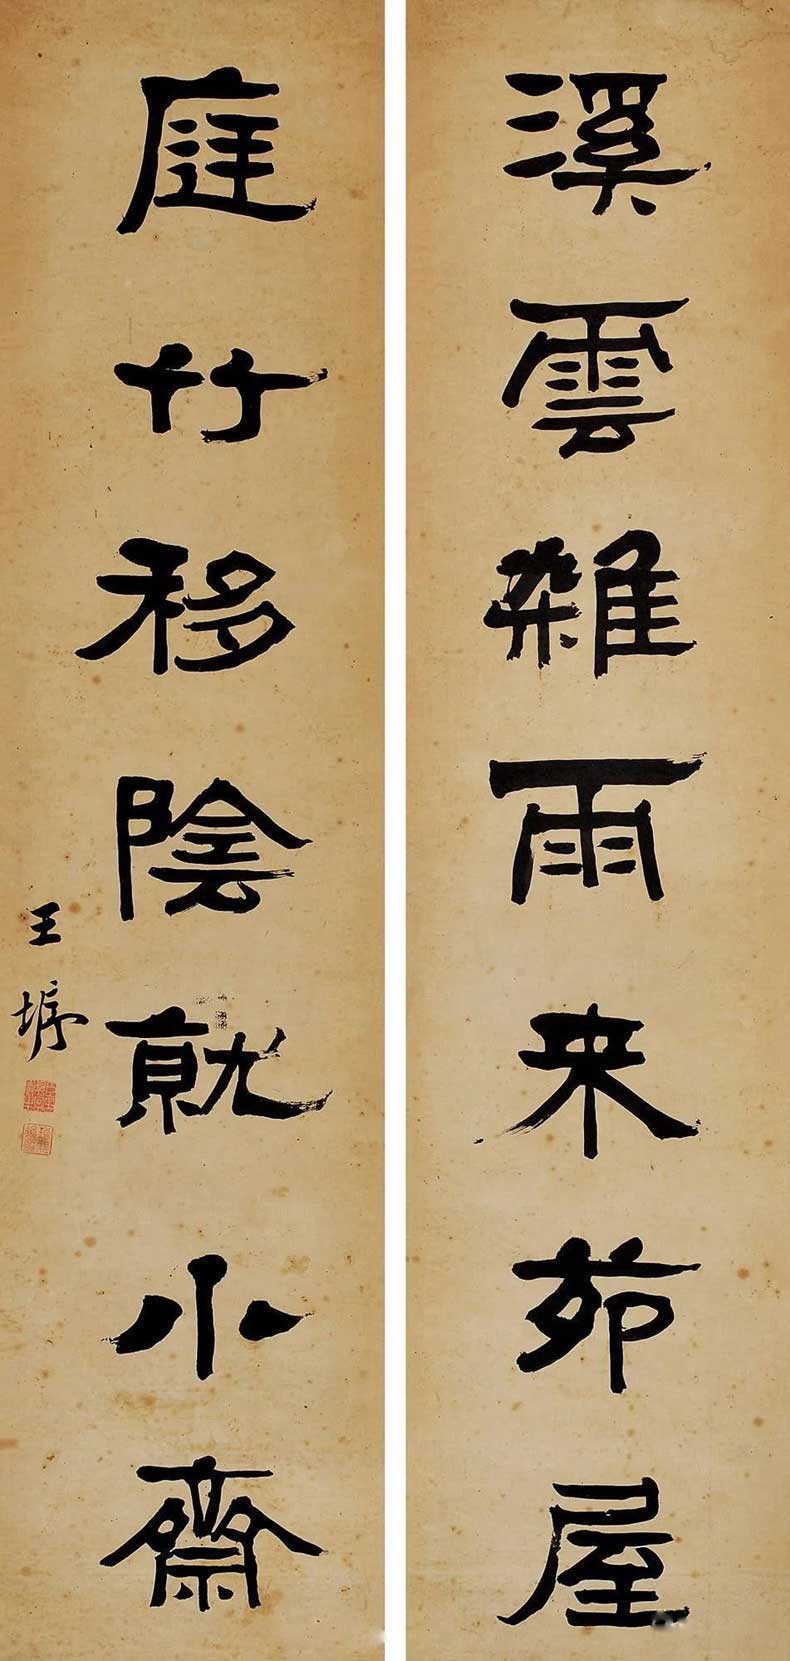 溪雲雜雨来茆屋
庭竹移陰就小齋
王垿